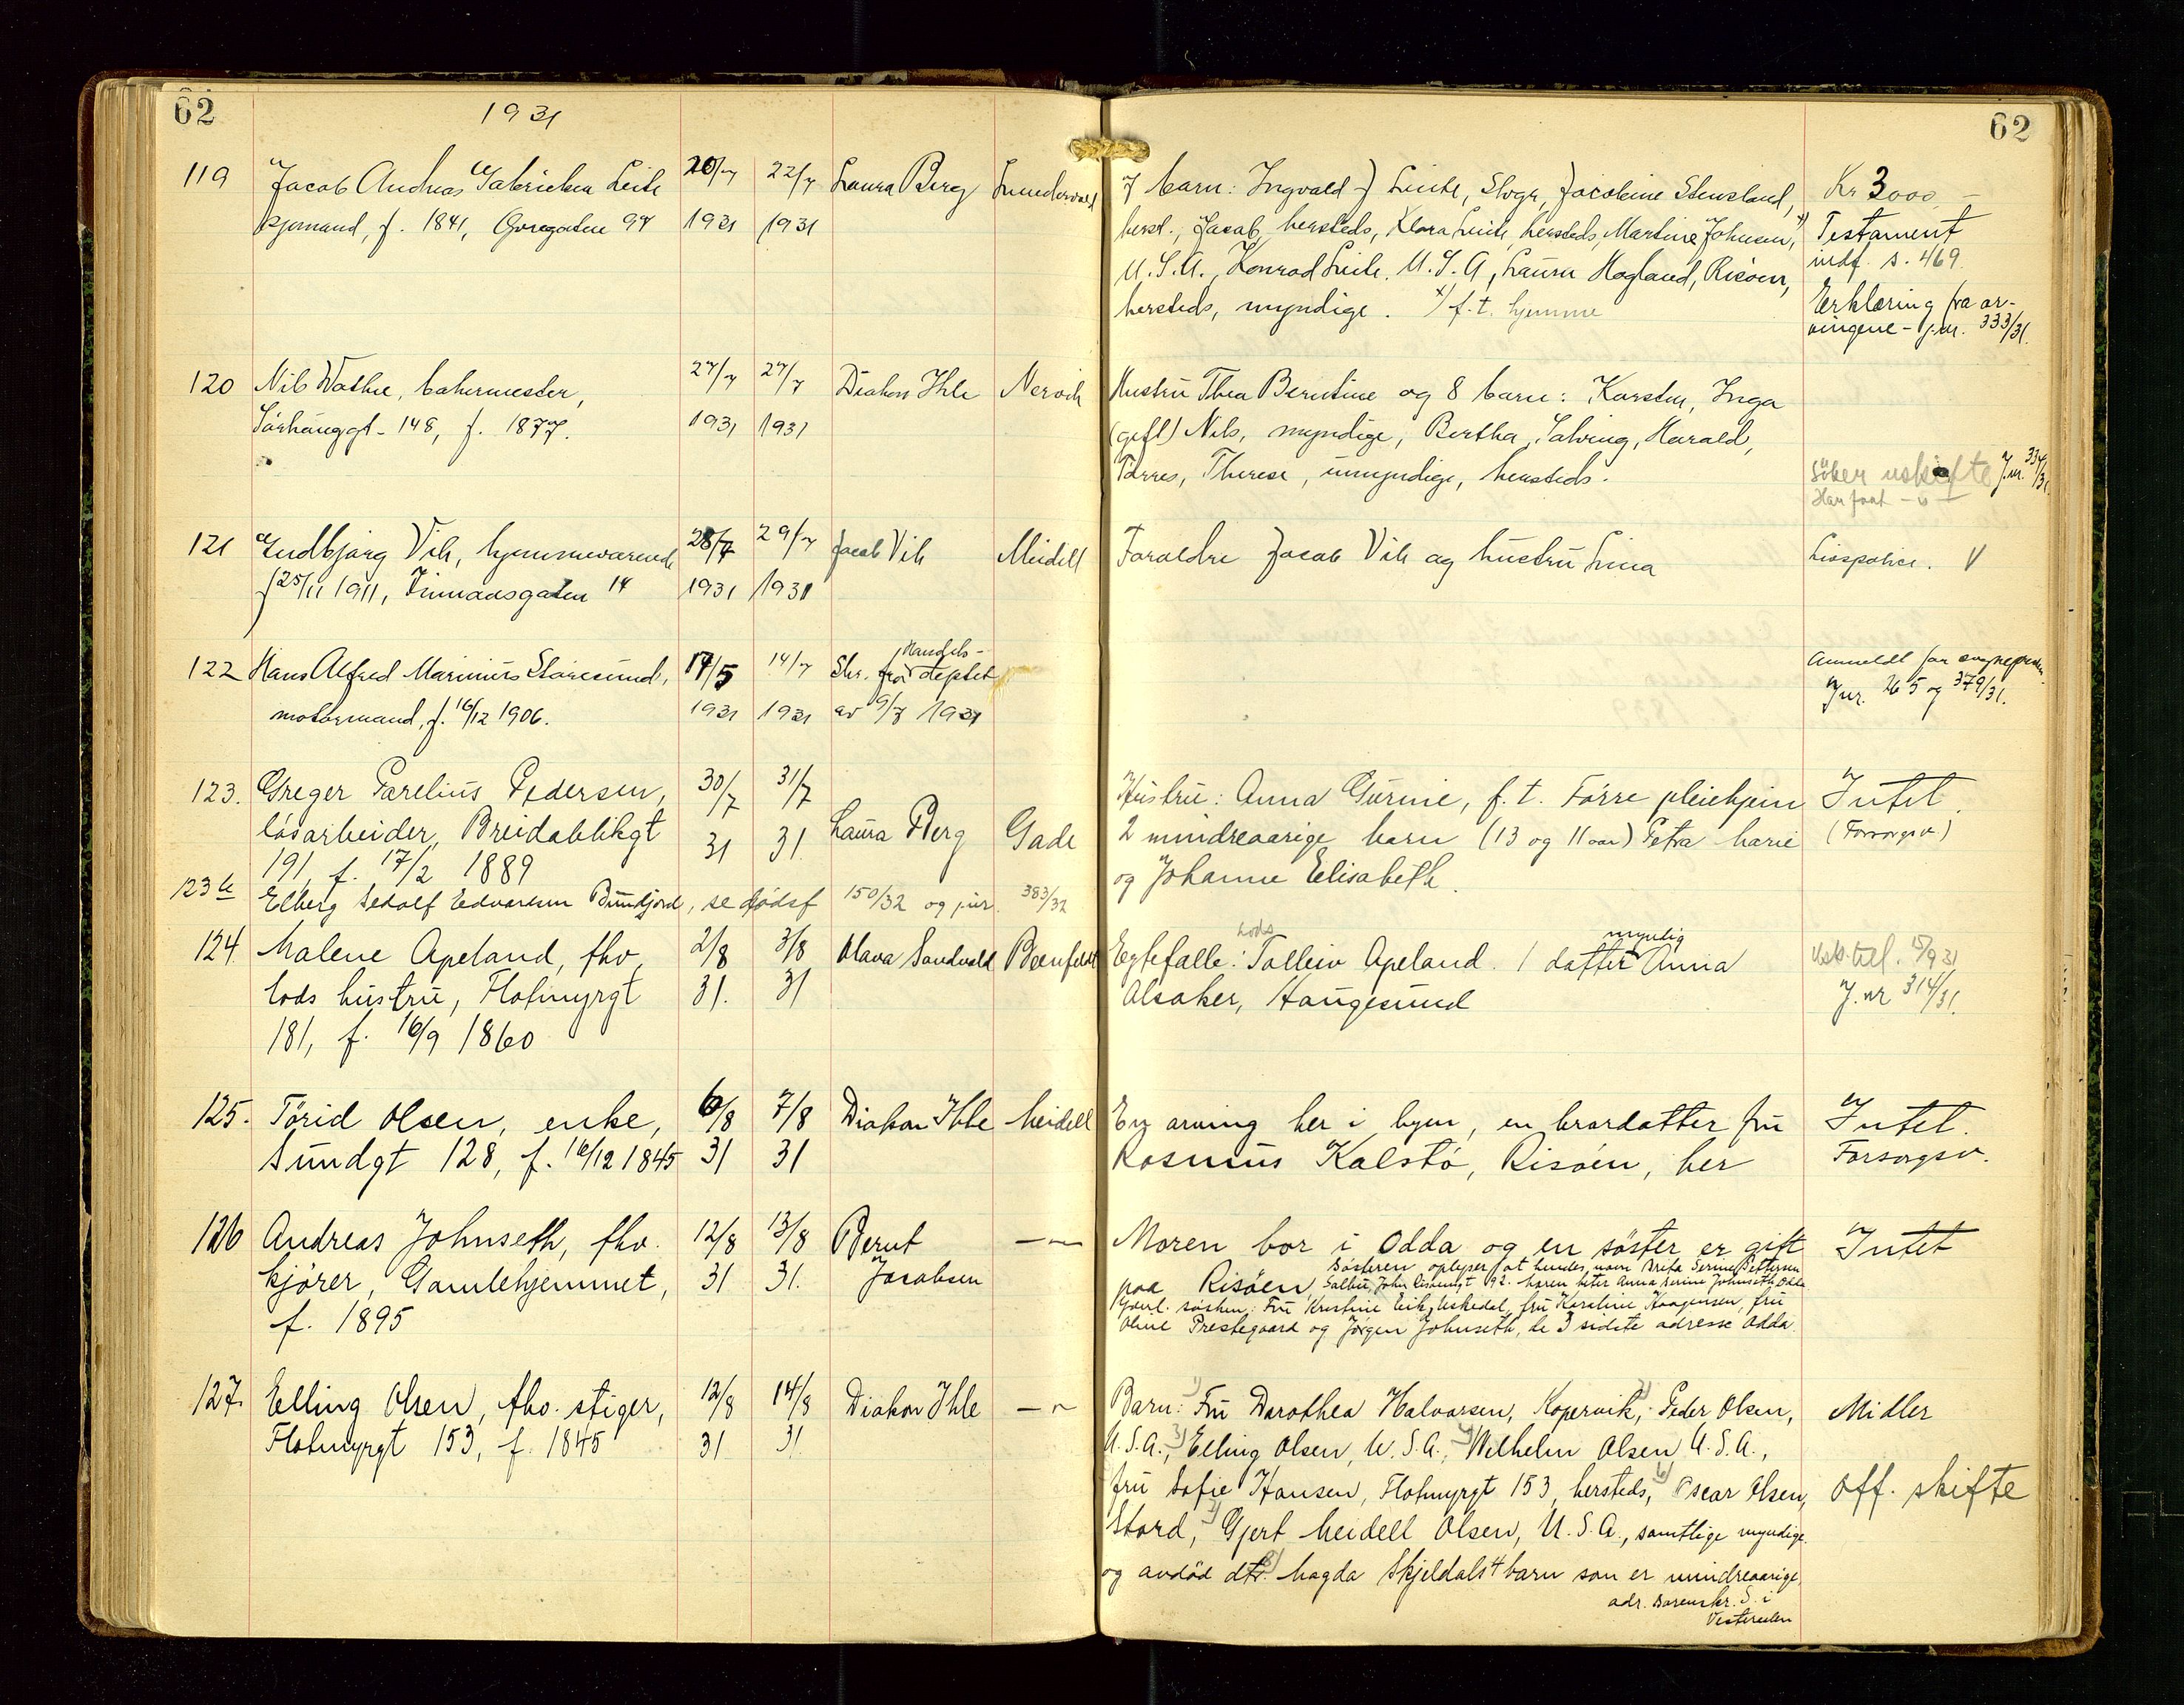 62
1931
62
119 Jacob Andreas Gabrielsen Leite 20/7 22/7 Laura Berg
f. 1841, 94 1931 1931
7 barn: Ingvald J Jacobine Stensland, Kr 3000,-
herst., Jacob, hersteds, Klara hersteds, Martine Johnsen, x) Testament
U.S.A., Konrad U.S.A, Laura Hagland, Risøen, indf. s. 469.
hersteds, myndige. x) f.t. hjemme
Erklæring fra ar-
vingene - j.nr. 333/31.
120 Nils Wathne, bakermester, 27/7 27/7 Diakon Ihle Nervik
Sørhauggt. 148, f. 1877. 1931 1931
Hustru Thea Berntine og 8 barn: Karsten, Inga
(gift) Nils, myndige, Bertha, Harald,
Torres, Therese, umyndige, hersteds.
Søker uskifte J.nr. 334/31.
Har faat -"-
121 Gudbjørg Vik, hjemmeværende 28/7 29/7 Jacob Vik Meidell
f 25/11 1911, 14 1931 1931
Foraldre Jacob Vik og hustru Lina
Livspolice. V
122 Hans Alfred Marinius Storesund, 17/5 14/7 Skr. fra Handels-deptet
motormand, f. 16/12 1906. 1931 1931 av 9/7 1931
Anmeldt for
Jnr. 265 og 379/31.
123. Greger Parelius Pedersen, 30/7 31/7
løsarbeider, Breidablikgt 31 31. Laura Berg Gade
191, f. 17/2 1889
Hustru: Anna Gurine, f.t. Førre pleiehjem Intet.
2 mindreaarige barn (13 og 11 aar) Petra Marie (Forsorgsv)
og Johanne Elisabeth.
123 b Elberg Sedolf Edvardsen Bundjord, se dødsf 150/32 og jnr. 383/32
124. Malene Apeland, fhv. 2/8 3/8 Olava Sandvold
lods hustru, Flotmyrgt 31. 31
181, f. 16/9 1860
Egtefælle: lods Tolleiv Apeland. 1 datter myndig Anna
Alsaker, Haugesund
Usk.till. 5/9 31
J. nr 314/31.
125. Törid Olsen, enke, 6/8 7/8 Diakon Ihle Meidell
Sundgt 128, f. 16/12 1845 31 31
En arving her i byen, en brordatter fru Intet.
Rasmus Kalstø, Risøen, her Forsorgsv.
126 Andreas Johnseth, fhv. 12/8 13/8 Bernt -"-
kjører, Gamlehjemmet, 31 31. Jacobsen
f. 1895
Moren bor i Odda og en søster er gift Intet
Søsteren oplyser at hendes navn Brita Serine Pettersen
paa Risøen, John Risøensgt 92. Moren heter Anna Serine Johnseth Odda
søsken: Fru Kristine Eik, Uskedal, fru Karoline Haagensen, fru
Oline Prestegaard og Jørgen Johnseth, de 3 sidste adresse Odda.
127. Elling Olsen, fhv. stiger, 12/8 14/8 Diakon Ihle -"-
Flotmyrgt 153, f. 1845 31 31.
Barn: 1) Fru Dorothea Halvorsen, Kopervik, 2) Peder Olsen, Midler
U.S.A., 3) Elling Olsen, U.S.A., 4) Wilhelm Olsen U.S.A.,
fru Sofie Hansen, Flotmyrgt 153, hersteds, 6) Oscar Olsen, Off. skifte
Stord, 7) Gjert Meidell Olsen, U.S.A., samtlige myndige.
og avdød dtr. 8) Magda Skjeldals 4 barn som er mindreaarige.
adr. Barenskr. S. i
Vesteraalen